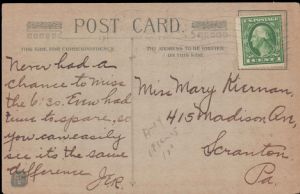 POST CARD.
THIS SIDE FOR CORRESPONDENCE
THE ADDRESS TO BE WRITTEN ON THIS SIDE.
Never had a
chance to miss
the 6:30. Even had
time to spare, so
you can easily
see it's the same
difference
J.E.R.
Miss Mary Kiernan,
415 Madison Ave,
Scranton
Pa.
U.S. POSTAGE
1 CENT 1